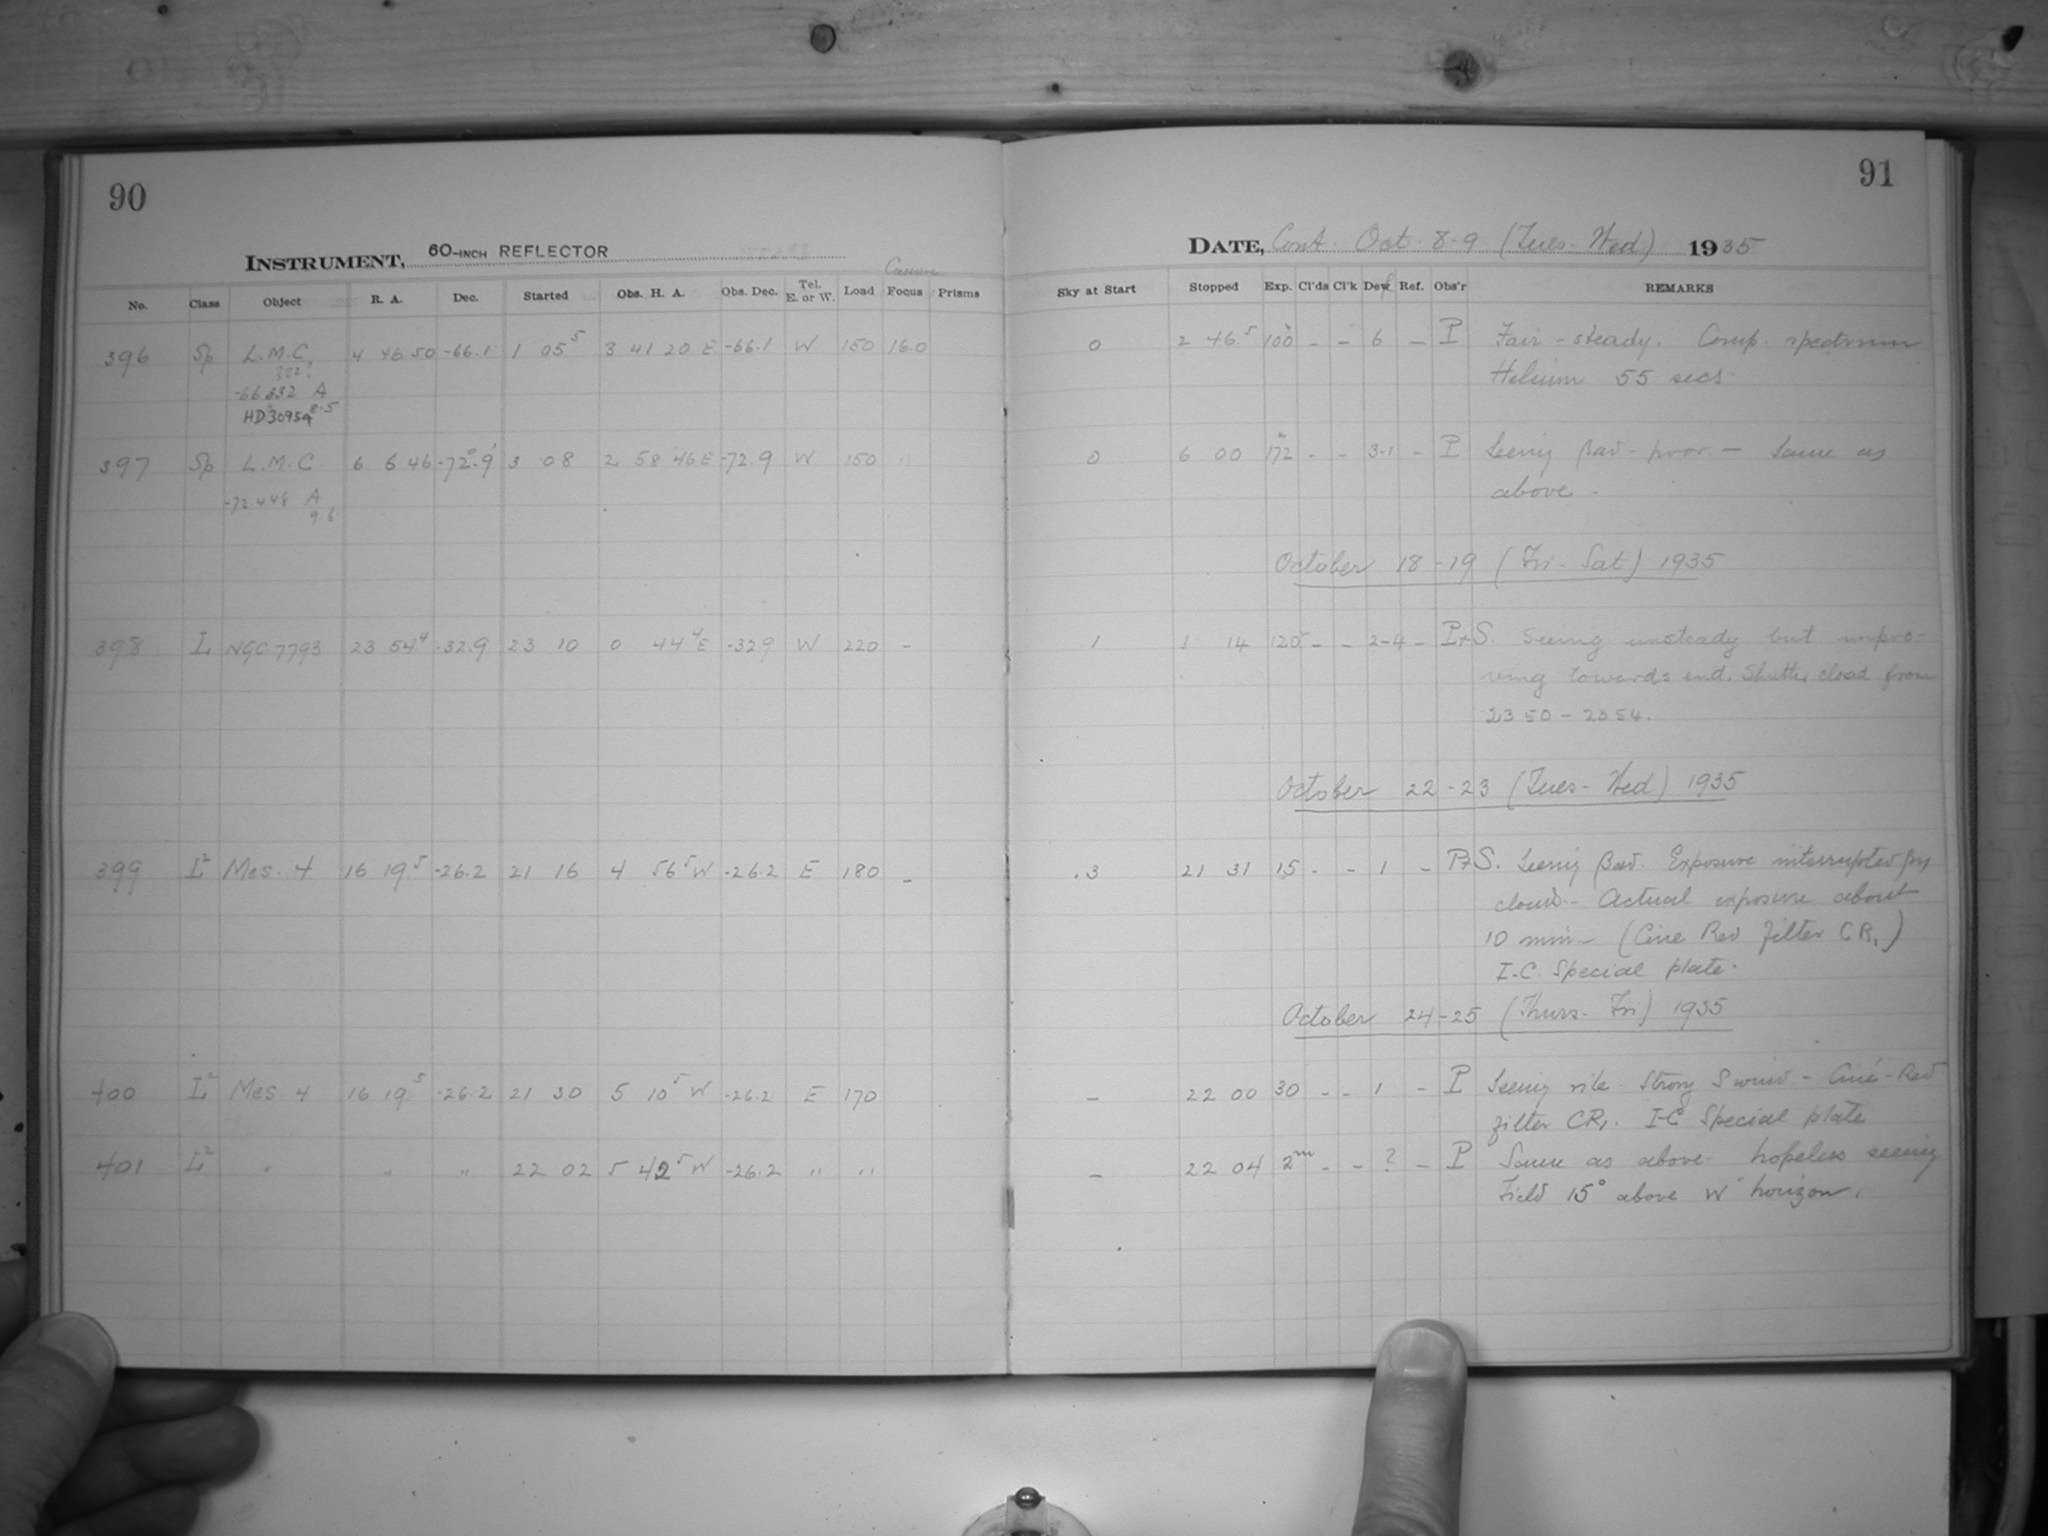 90
INSTRUMENT, 60-INCH REFLECTOR
No. Class Object R. A. Dec. Started Obs. H. A. Obs. Dec. Tel. E. or W. Load Camera Focus Prisms
396 Sp L.M.C. 4 46 50 -66.1 1 05⁵ 3 41 20 E -66.1 W 150 16.0
322?
-66 332 A
HD 30954 8.5
397 Sp L.M.C. 6 6 46 -72°.9' 3 08 2 58 46 E -72.9 W 150 "
-72.448 A
9.6
398 L NGC 7793 23 54⁴ -32.9 23 10 0 44⁴ E -32.9 W 220 -
399 L² Mes. 4 16 19⁵ -26.2 21 16 4 56⁵ W -26.2 E 180 -
400 L² Mes. 4 16 19⁵ -26.2 21 30 5 10⁵ W -26.2 E 170
401 L² " " " 22 02 5 42⁵ W -26.2 " "
91
DATE, Cont. Oct. 8-9 (Tues-Wed) 1935
Sky at Start Stopped Exp. Cl'ds Cl'k Def. Ref. Obs'r REMARKS
0 2 46⁵ 100 - - 6 - P Fair - steady. Comp. spectrum
Helium 55 secs.
0 6 00 172 - - 3-1 - P Seeing Bad - poor. - Same as
above -
October 18-19 (Fri-Sat) 1935
1 1 14 120 - - 2-4 - P+S. Seeing unsteady but impro-
ving towards end. Shutter closed from
23 50 - 23 54.
October 22-23 (Tues-Wed) 1935
.3 21 31 15 - - 1 - P+S. Seeing Bad. Exposure interrupted by
cloud - Actual exposure about
10 min - (Cine Red filter CR₁)
I-C Special plate.
October 24-25 (Thurs-Fri) 1935
- 22 00 30 - - 1 - P Seeing vile. Strong S wind - Ciné-Red
filter CR₁. I-C Special plate
- 22 04 2ᵐ - - ? - P Same as above. hopeless seeing
Field 15° above W horizon.